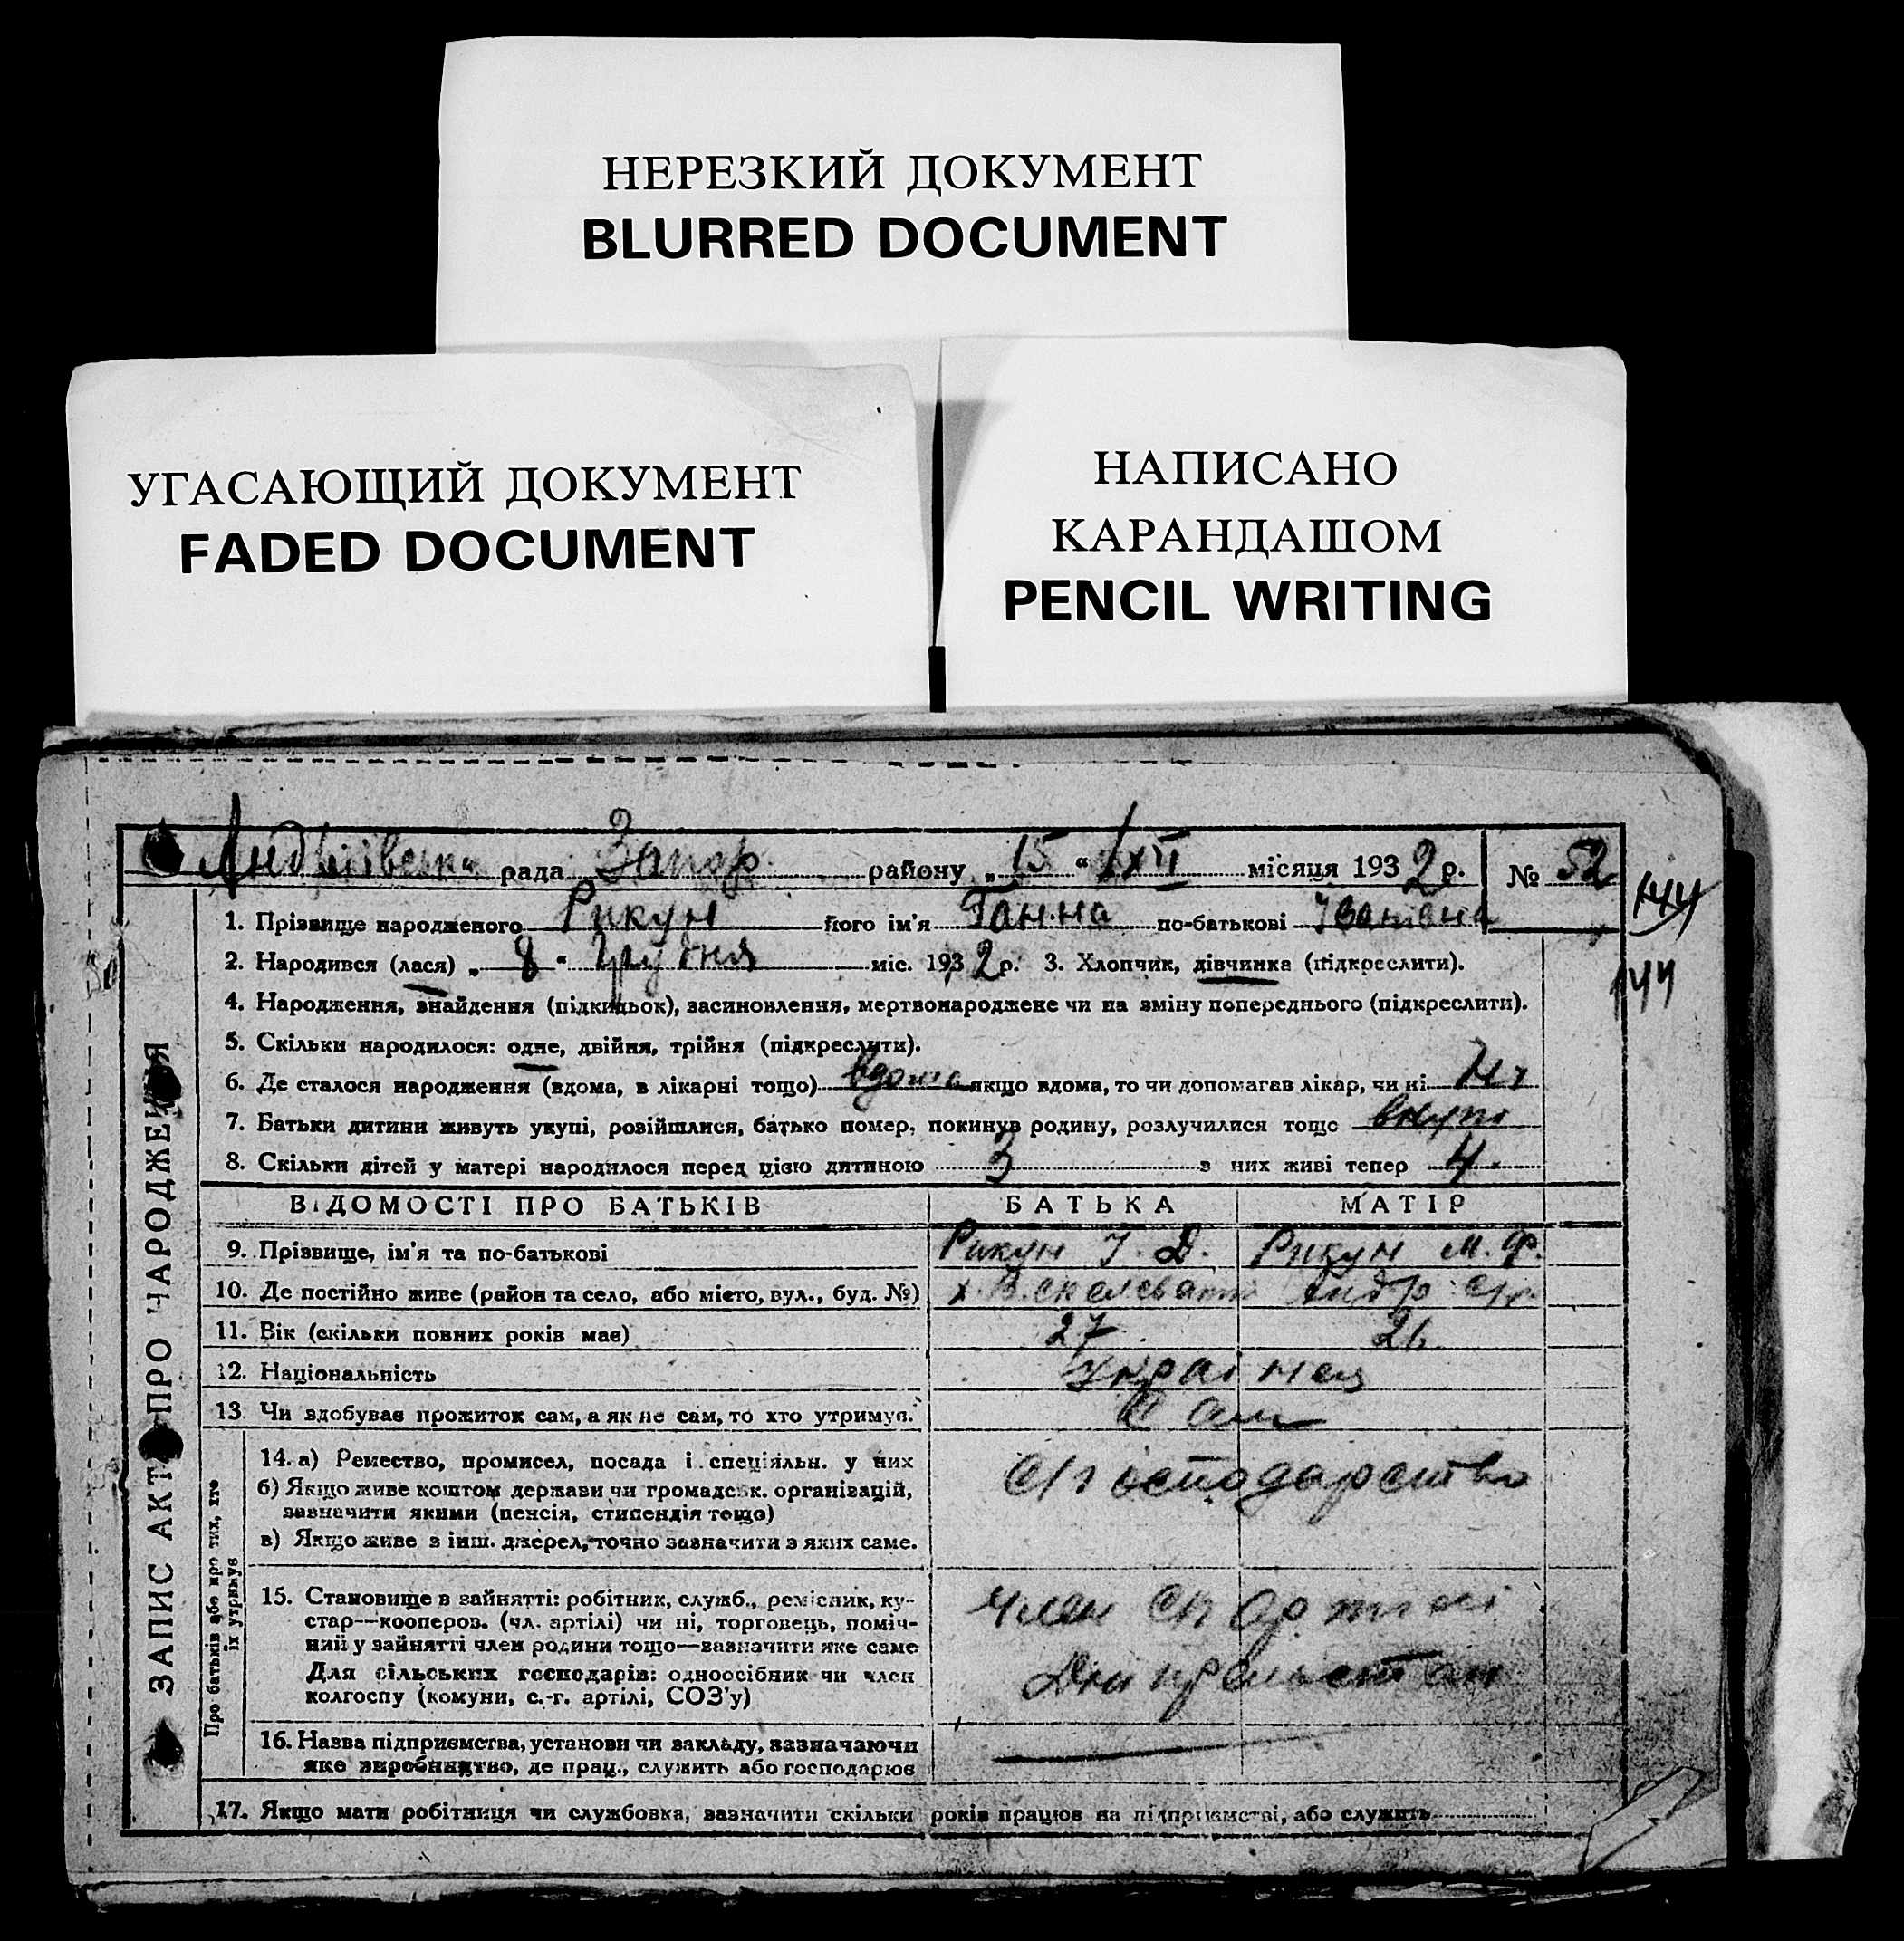 НЕРЕЗКИЙ ДОКУМЕНТ
BLURRED DOCUMENT
УГАСАЮЩИЙ ДОКУМЕНТ
FADED DOCUMENT
НАПИСАНО
КАРАНДАШОМ
PENCIL WRITING
рада Запор. району „15“ XII місяця 1932 р. № 52
144
1. Прізвище народженого Рикун його ім'я Ганна по-батькові Іванівна
2. Народився (лася) „8“ Грудня міс. 1932 р. 3. Хлопчик, дівчинка (підкреслити).
144
4. Народження, знайдення (підкидьок), засиновлення, мертвонароджене чи на зміну попереднього (підкреслити).
5. Скільки народилося: одне, двійня, трійня (підкреслити).
6. Де сталося народження (вдома, в лікарні тощо) вдома якщо вдома, то чи допомагав лікар, чи ні Ні
7. Батьки дитини живуть укупі, розійшлися, батько помер, покинув родину, розлучилися тощо вкупі
8. Скільки дітей у матері народилося перед цією дитиною 3 з них живі тепер 4
ВІДОМОСТІ ПРО БАТЬКІВ БАТЬКА МАТІР
9. Прізвище, ім'я та по-батькові Рикун І. Д. Рикун М. Ф.
10. Де постійно живе (район та село, або місто, вул., буд. №) х. В.
11. Вік (скільки повних років має) 27 26
12. Національність Українец
13. Чи здобуває прожиток сам, а як не сам, то хто утримув. Сам
14. а) Ремество, промисел, посада і спеціяльн. у них
б) Якщо живе коштом держави чи громадськ. організацій,
зазначити якими (пенсія, стипендія тощо)
в) Якщо живе з інш. джерел, точно зазначити з яких саме.
С/господарство
15. Становище в зайнятті: робітник, служб., ремісник, ку-
стар—кооперов. (чл. артілі) чи ні, торговець, поміч-
ний у зайнятті член родини тощо—зазначити яке саме
Для сільських господарів: одноосібник чи член
колгоспу (комуни, с.-г. артілі, СОЗ'у)
Член
16. Назва підприємства, установи чи закладу, зазначаючи
яке виробництво, де прац., служить або господарює
17. Якщо мати робітниця чи службовка, зазначити скільки років працює на підприємстві, або служить
ЗАПИС АКТ ПРО НАРОДЖЕННЯ
Про батьків або про тих, хто
їх утримує